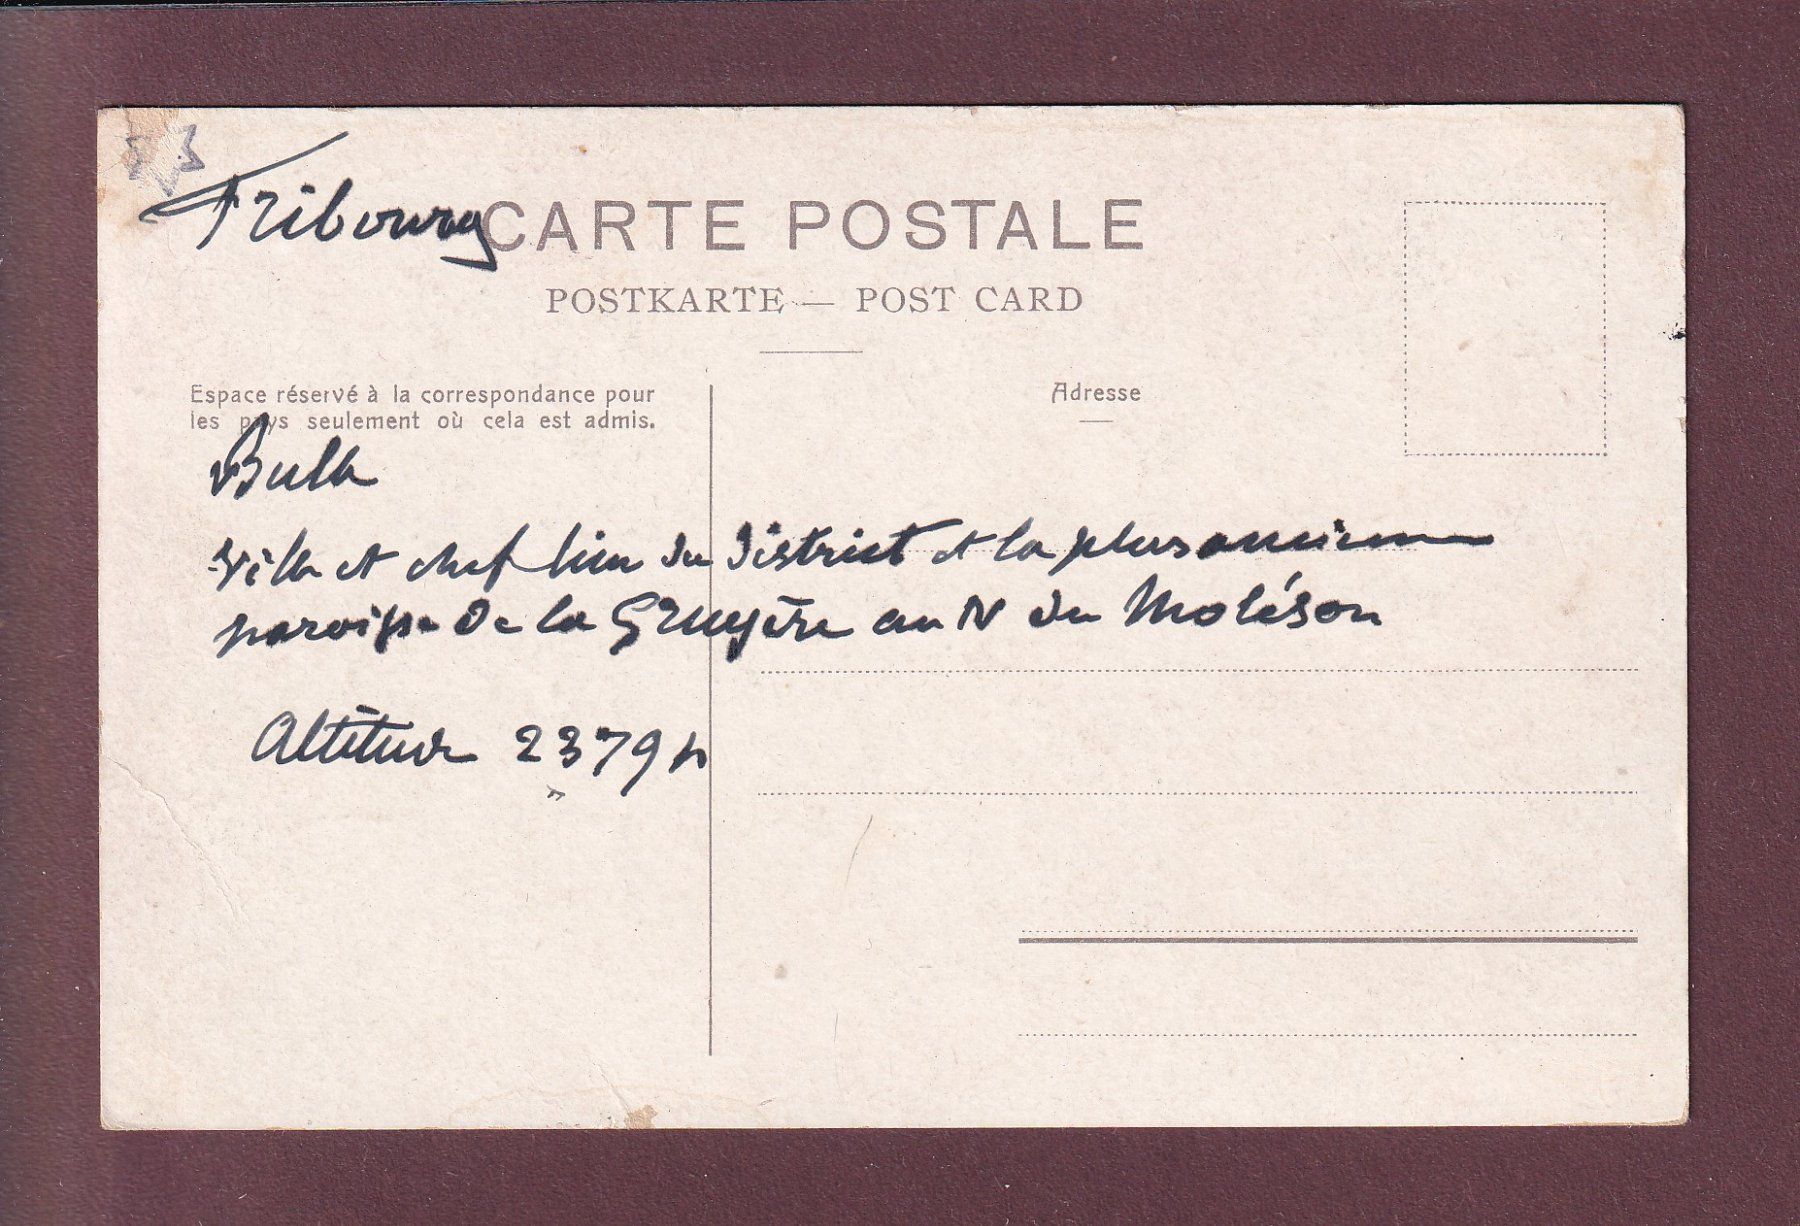 Fribourg
CARTE POSTALE
POSTKARTE — POST CARD
Espace réservé à la correspondance pour
les pays seulement où cela est admis.
Adresse
Bulle
ville et chef lieu du district et la plus ancienne
paroisse de la Gruyère au N du Moléson
Altitude 2379